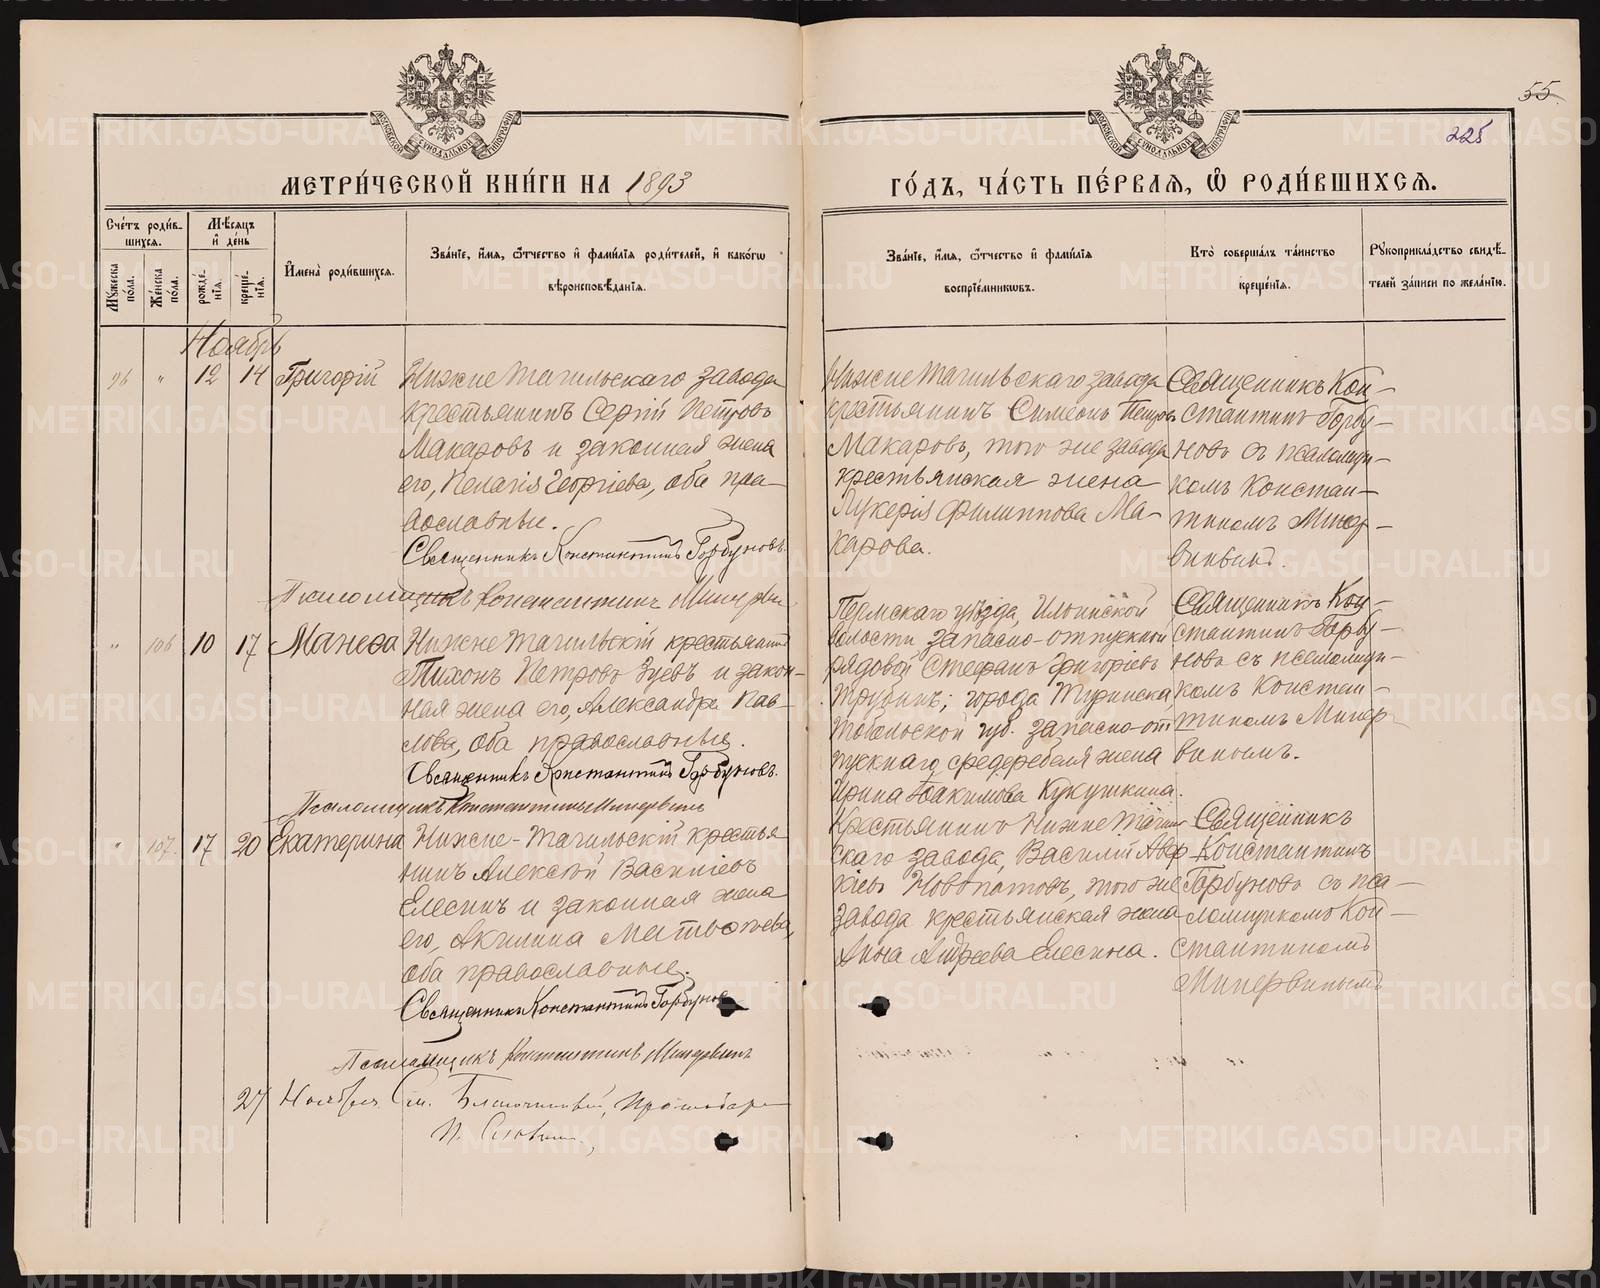 55.
225
МОСКОВСКОЙ СѴНОДАЛЬНОЙ ТИПОГРАФІИ
МОСКОВСКОЙ СѴНОДАЛЬНОЙ ТИПОГРАФІИ
МЕТРИ́ЧЕСКОЙ КНИ́ГИ НА 1893
ГО́ДЪ, ЧА́СТЬ ПЕ́РВАѦ, Ѽ РОДИ́ВШИХСѦ.
Сче́тъ роди́вшихся.
Мѣ́сяцъ и҆ де́нь
Му́жеска по́ла.
Же́нска по́ла.
рожде́нїя.
креще́нїя.
И҆мена̀ роди́вшихся.
Зва́нїе, и҆́мя, ѻ҆́тчество и҆ фами́лїя роди́телей, и҆ како́гѡ
вѣроисповѣ́данїя.
Зва́нїе, и҆́мя, ѻ҆́тчество и҆ фами́лїя
воспрїе́мниковъ.
Кто̀ соверша́лъ та́инство
креще́нїя.
Рꙋкоприкла́дство свидѣ́телей за́писи по жела́нїю.
Ноябрь
96 " 12 14 Григорій
Нижне Тагильскаго завода
крестьянинъ Сергій Петровъ
Макаровъ и законная жена
его, Пелагія Георгіева, оба пра-
вославные.
Священникъ Константинъ Горбуновъ.
Псаломщикъ Константинъ Минерви
Нижне Тагильскаго завода
крестьянинъ Симеонъ Петровъ
Макаровъ, того же завода
крестьянская жена
Гукерія Филиппова Ма-
карова.
Священникъ Кон-
стантинъ Горбу-
новъ съ псаломщи-
комъ Констан-
тиномъ Минер-
винымъ.
" 106 10 17 Манефа
Нижне Тагильскій крестьянинъ
Тихонъ Петровъ Зуевъ и закон-
ная жена его, Александра Пав-
лова, оба православные.
Священникъ Константинъ Горбуновъ.
Псаломщикъ Константинъ Минервинъ
Пермскаго уѣзда, Ильинской
волости запасно-отпускной
рядовой Стефанъ Григоріевъ
Трубинъ; города Туринска,
Тобольской губ. запасно-от
пускнаго жена
Ирина Іоакимова Кукушкина.
Священникъ Кон-
стантинъ Горбу-
новъ съ псаломщи-
комъ Констан-
тиномъ Минер-
винымъ.
" 107 17 20 Екатерина
Нижне-Тагильскій крестья
нинъ Алексѣй Василіевъ
Елесинъ и законная жена
его, Акилина Матѳеева,
оба православные.
Священникъ Константинъ Горбунов
Псаломщикъ Константинъ Минервинъ
Крестьянинъ Нижне Тагиль
скаго завода, Василій Авер
кіевъ Новопатовъ, того же
завода крестьянская жена
Анна Андреева Елесина.
Священникъ
Константинъ
Горбуновъ съ пса-
ломщикомъ Кон-
стантиномъ
Минервинымъ
27 Ноября См. Благочинный, Протоіерей
П.